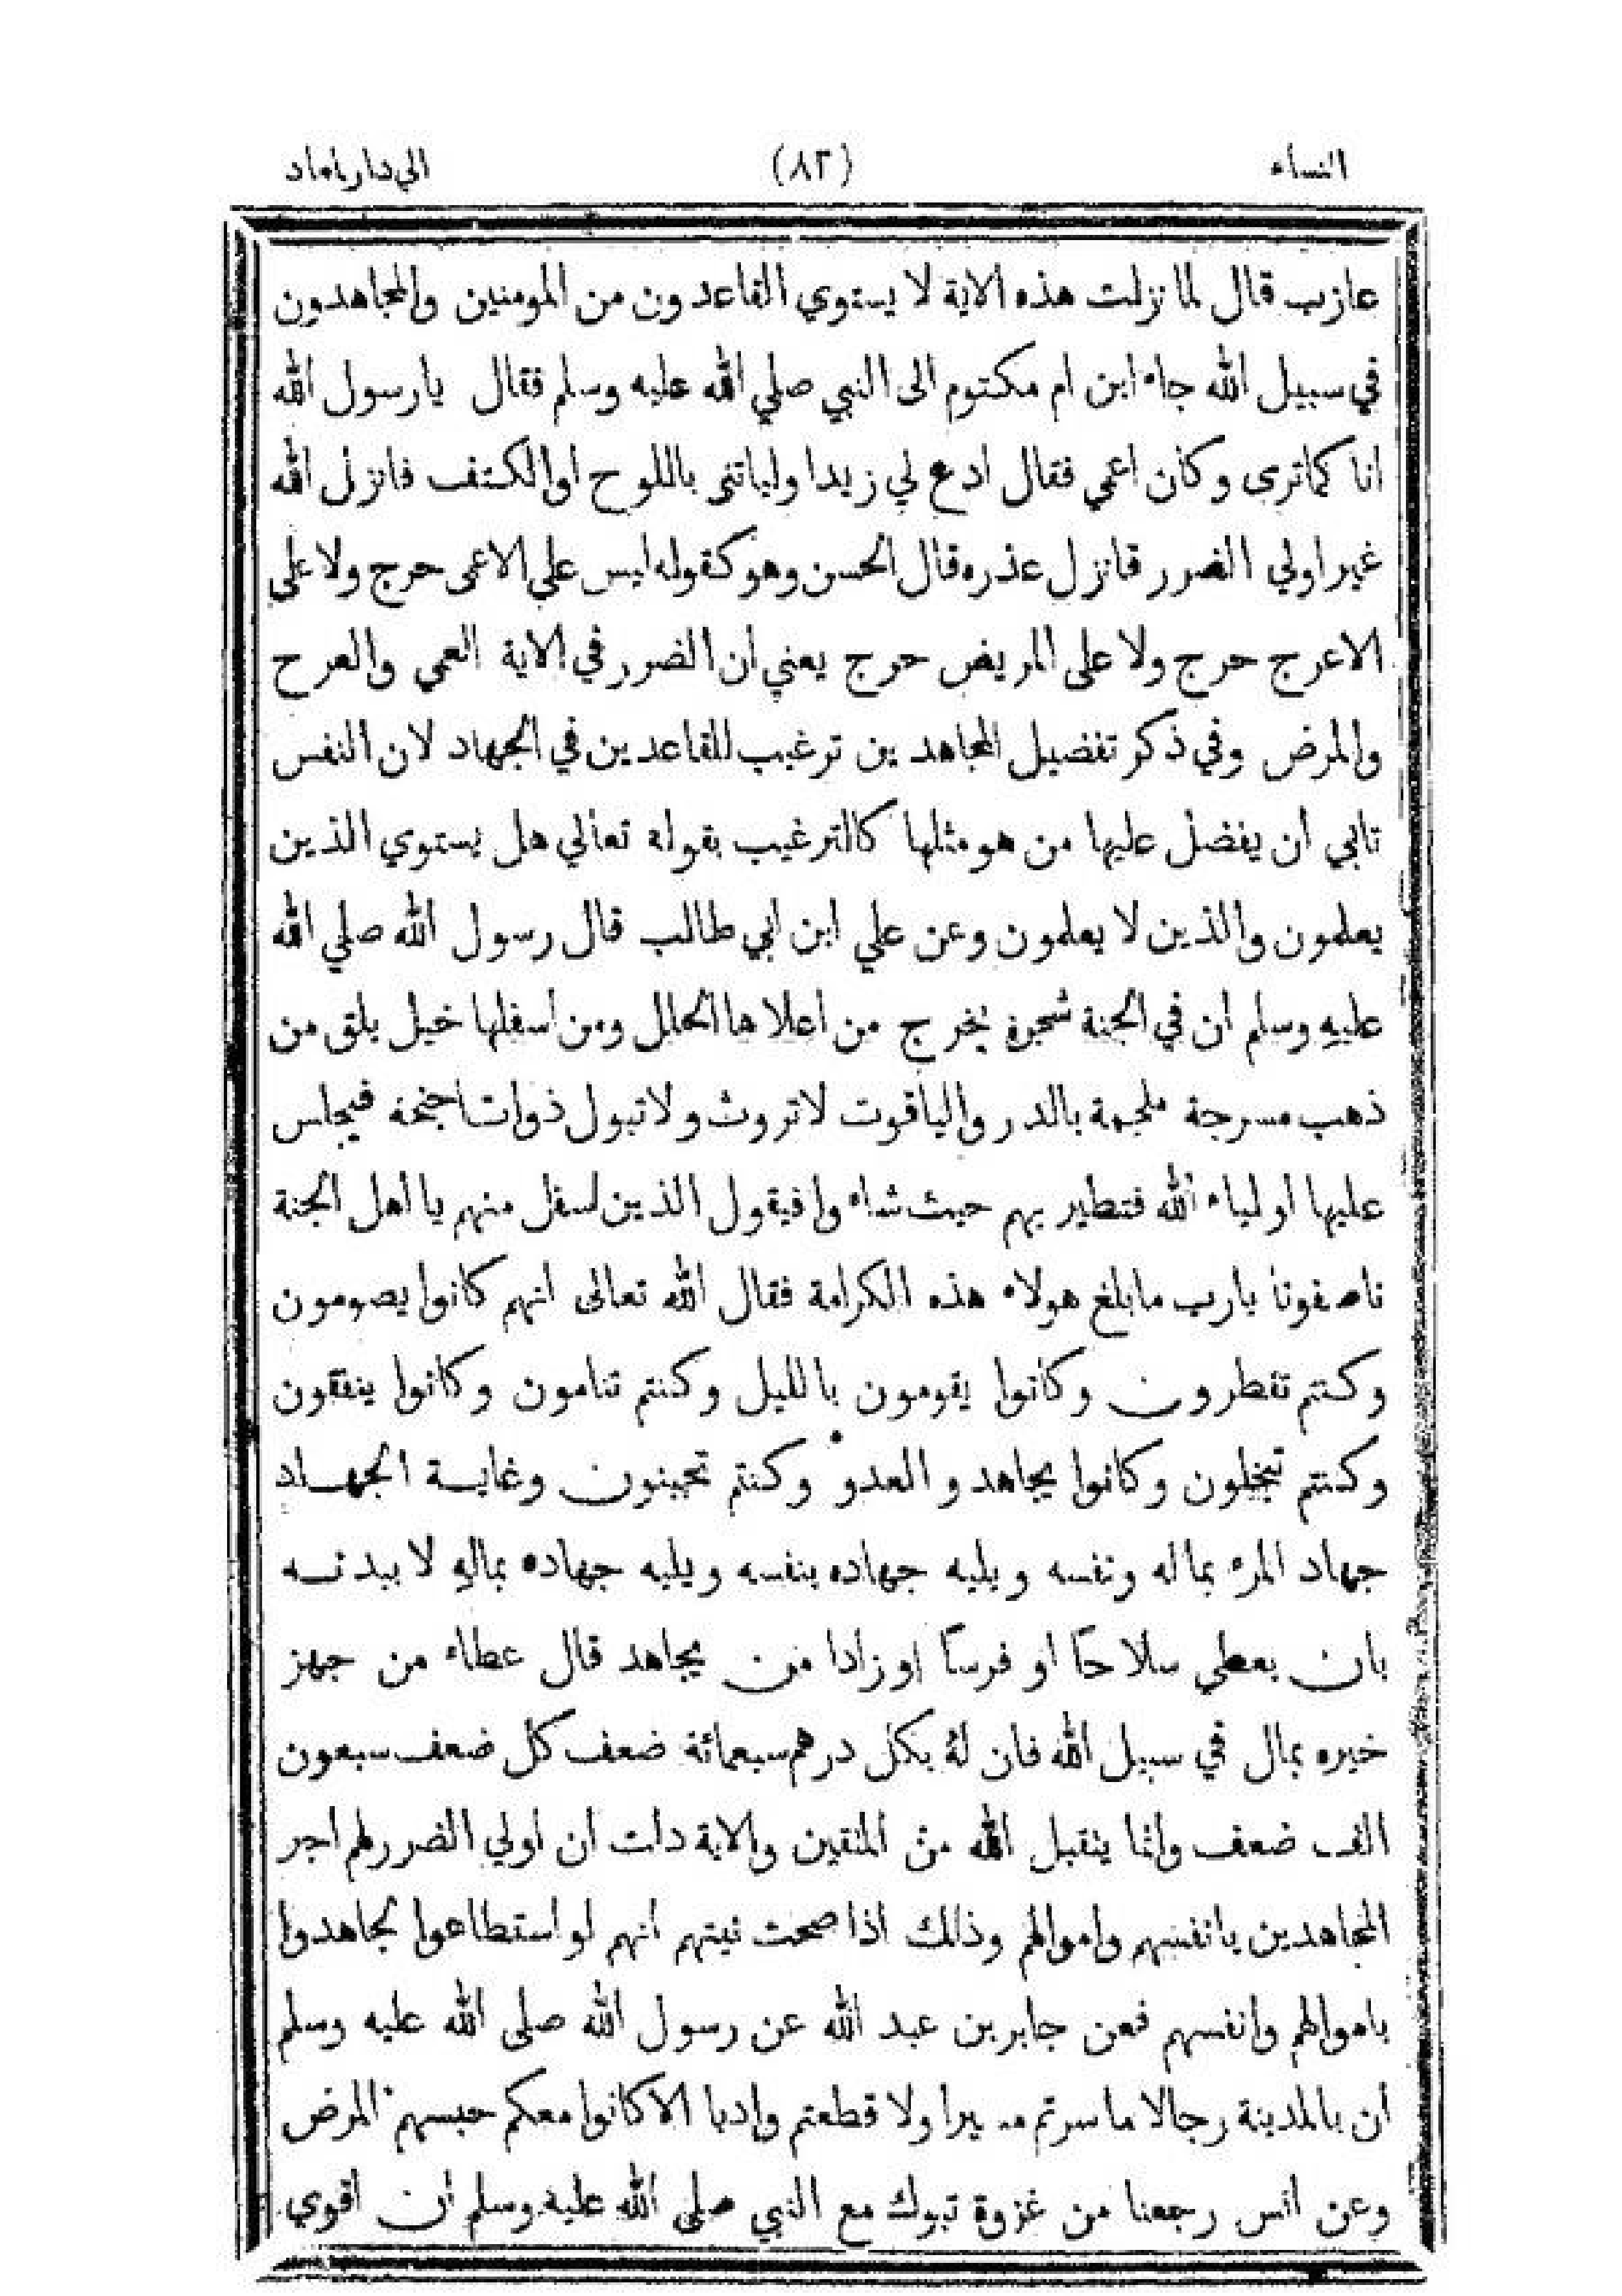 النساء (٨٢) الي دار امعاد
عازب قال لما نزلت هذه الاية لا يستوي القاعدون من المومنين والمجاهدون
في سبيل الله جاء ابن ام مكتوم الى النبي صلي الله عليه وسلم فقال يا رسول الله
انا كما ترى وكان اعمي فقال ادع لي زيدا ولياتني باللوح او الكتف فانزل الله
غير اولي الضرر فانزل عذره قال الحسن وهو كقوله ليس علي الاعمى حرج ولا على
الاعرج حرج ولا على المريض حرج يعني ان الضرر في الاية العمي والعرج
والمرض وفي ذكر تفضيل المجاهدين ترغيب للقاعدين في الجهاد لان النفس
تابي ان يفضل عليها من هو مثلها كالترغيب بقوله تعالي هل يستوي الذين
يعلمون والذين لا يعلمون وعن علي ابن ابي طالب قال رسول الله صلي الله
عليه وسلم ان في الجنة شجرة يخرج من اعلاها الحلل ومن اسفلها خيل بلق من
ذهب مسرجة ملجمة بالدر والياقوت لا تروث ولا تبول ذوات اجنحة فيجلس
عليها اولياء الله فتطير بهم حيث شاءوا فيقول الذين اسفل منهم يا اهل الجنة
ناصفونا يا رب ما بلغ هولاء هذه الكرامة فقال الله تعالى انهم كانوا يصومون
وكنتم تفطرون وكانوا يقومون بالليل وكنتم تنامون وكانوا ينفقون
وكنتم تبخلون وكانوا يجاهدو العدو وكنتم تجبنون وغاية الجهاد
جهاد المرء بماله ونفسه ويليه جهاده بنفسه ويليه جهاده بماله لا ببدنه
بان يعطي سلاحًا او فرسًا او زادا من يجاهد قال عطاء من جهز
غيره بمال في سبيل الله فان له بكل درهم سبعمائة ضعف كل ضعف سبعون
الف ضعف وانما يتقبل الله من المتقين والاية دلت ان اولي الضرر لهم اجر
المجاهدين بانفسهم واموالهم وذلك اذا صحت نيتهم انهم لو استطاعوا لجاهدوا
باموالهم وانفسهم فعن جابر بن عبد الله عن رسول الله صلى الله عليه وسلم
ان بالمدينة رجالا ما سرتم مسيرا ولا قطعتم واديا الا كانوا معكم حبسهم المرض
وعن انس رجعنا من غزوة تبوك مع النبي صلي الله عليه وسلم ان اقوي